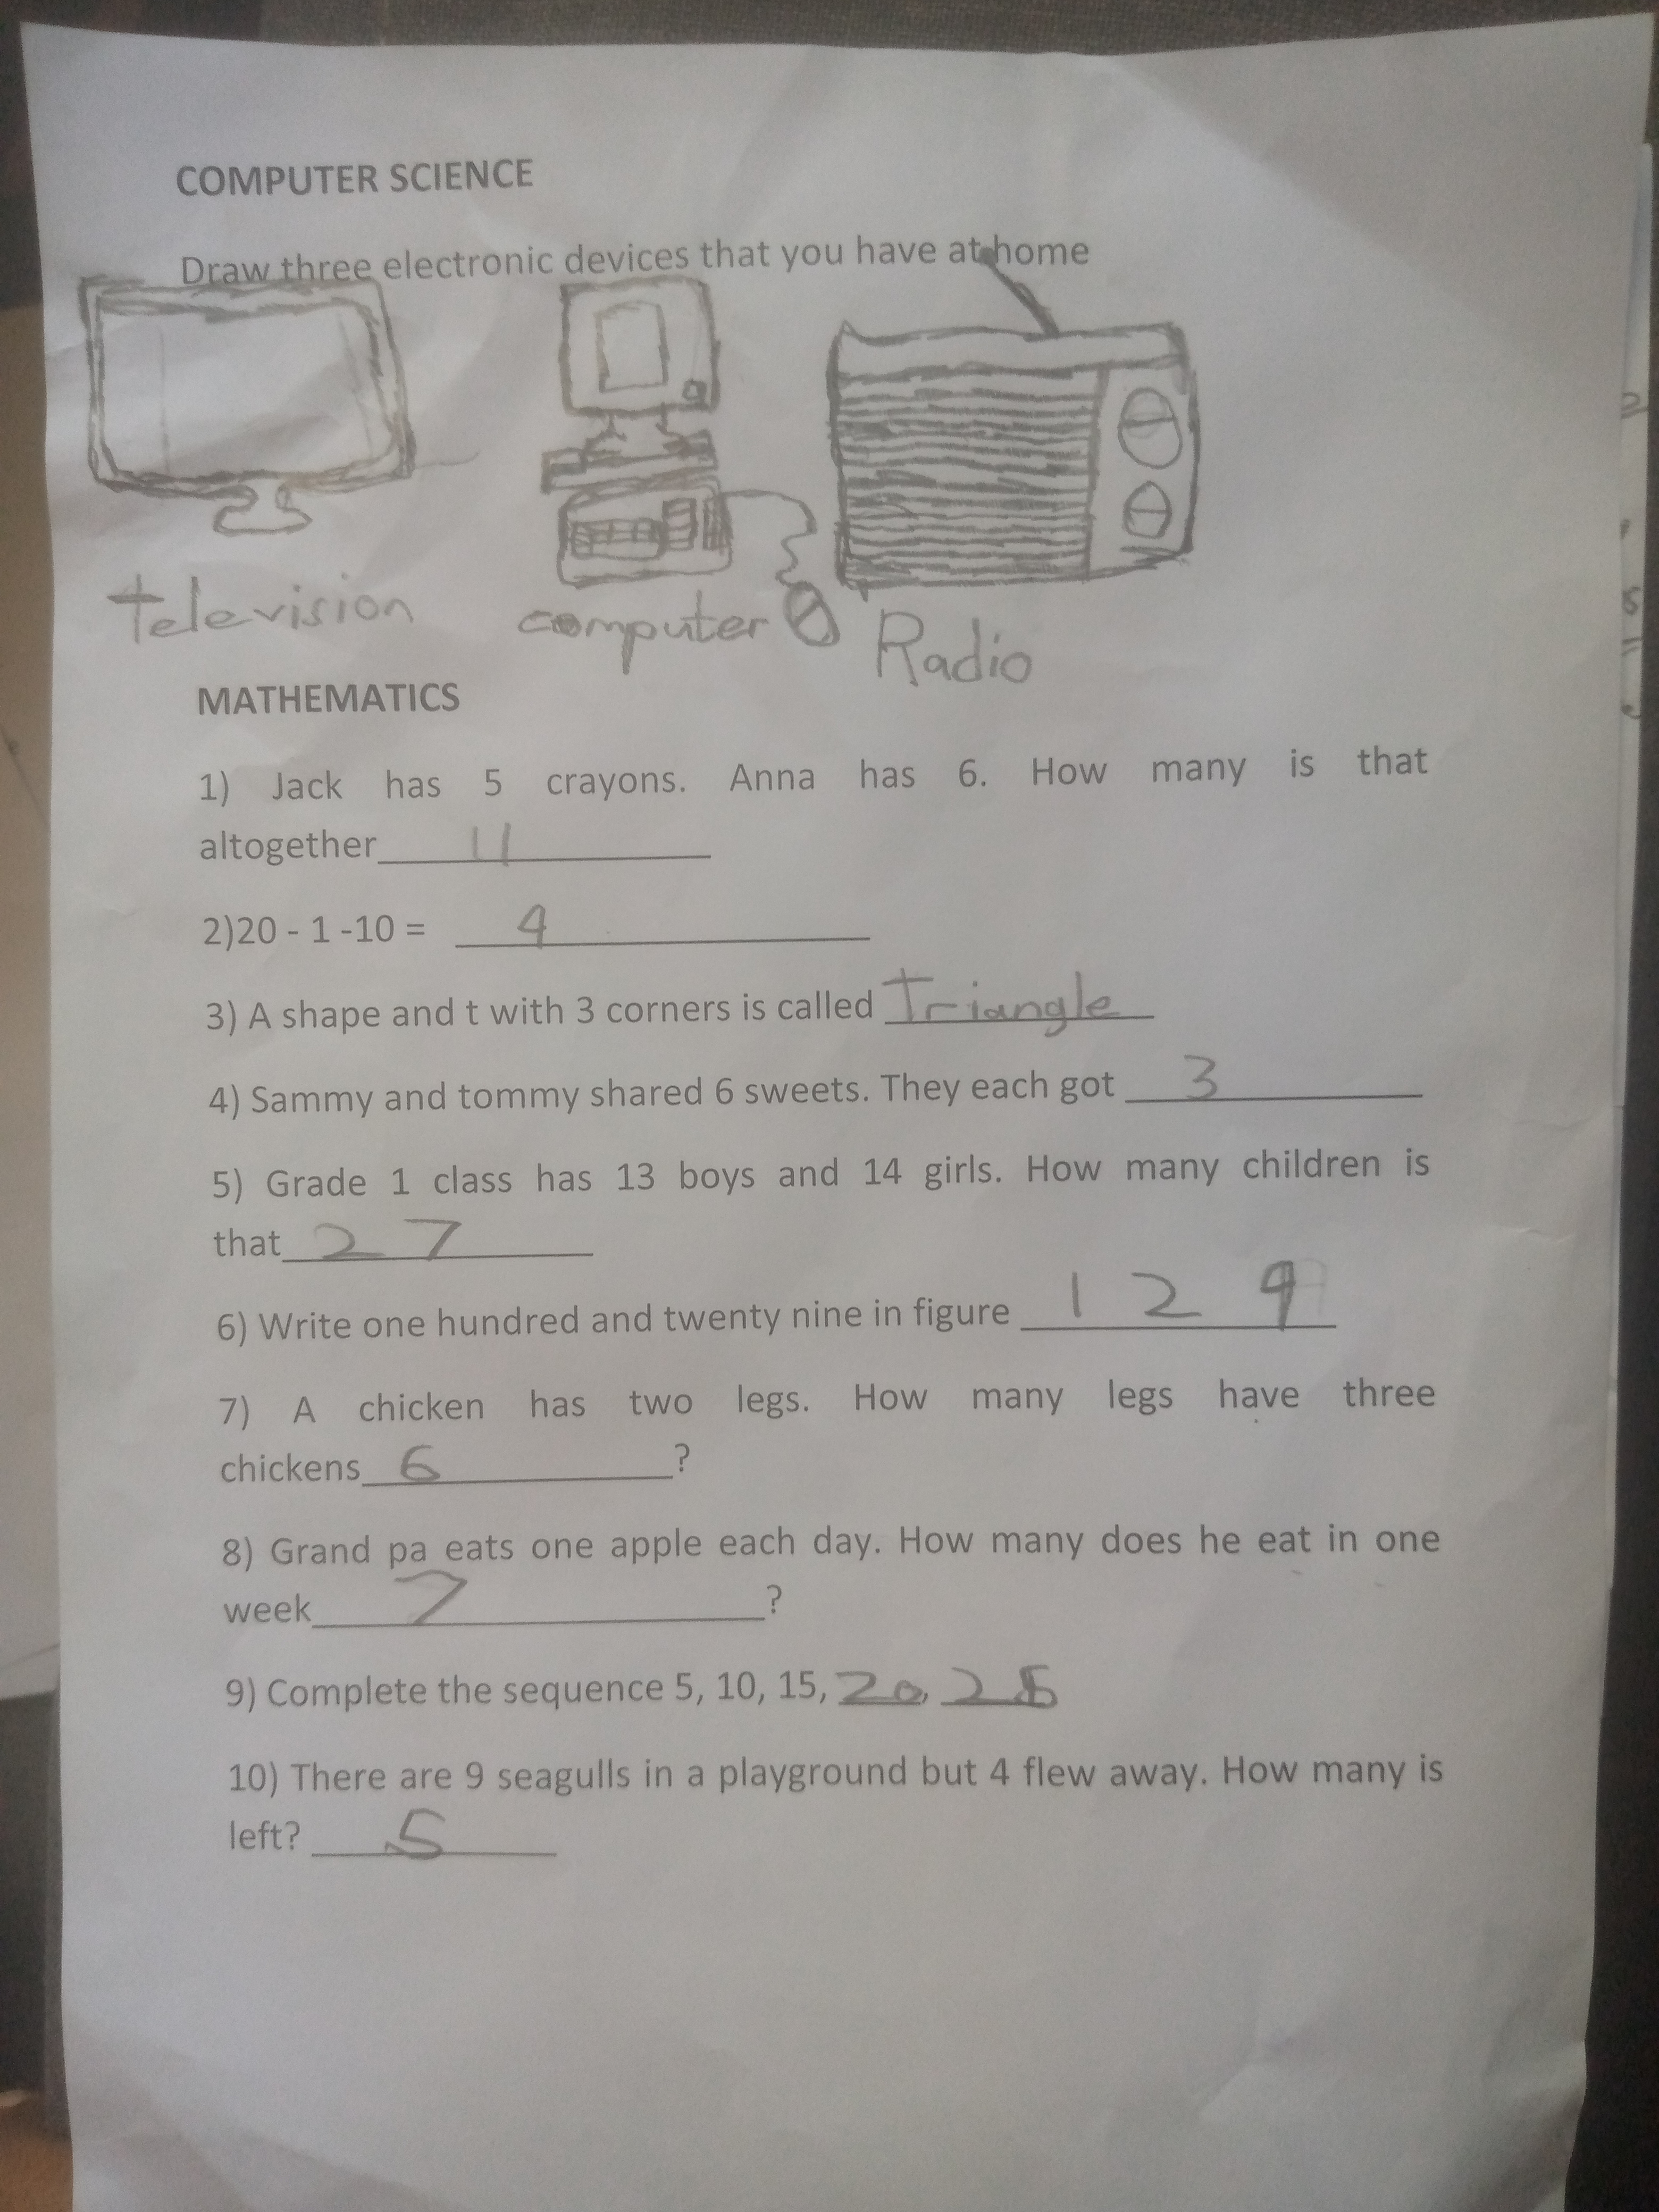 COMPUTER SCIENCE
Draw three electronic devices that you have at home
television computer Radio
MATHEMATICS
1) Jack has 5 crayons. Anna has 6. How many is that
altogether 11
2)20 - 1 -10 = 9
3) A shape and t with 3 corners is called Triangle
4) Sammy and tommy shared 6 sweets. They each got 3
5) Grade 1 class has 13 boys and 14 girls. How many children is
that 27
6) Write one hundred and twenty nine in figure 1 2 9
7) A chicken has two legs. How many legs have three
chickens 6 ?
8) Grand pa eats one apple each day. How many does he eat in one
week 7 ?
9) Complete the sequence 5, 10, 15, 20, 25
10) There are 9 seagulls in a playground but 4 flew away. How many is
left? 5